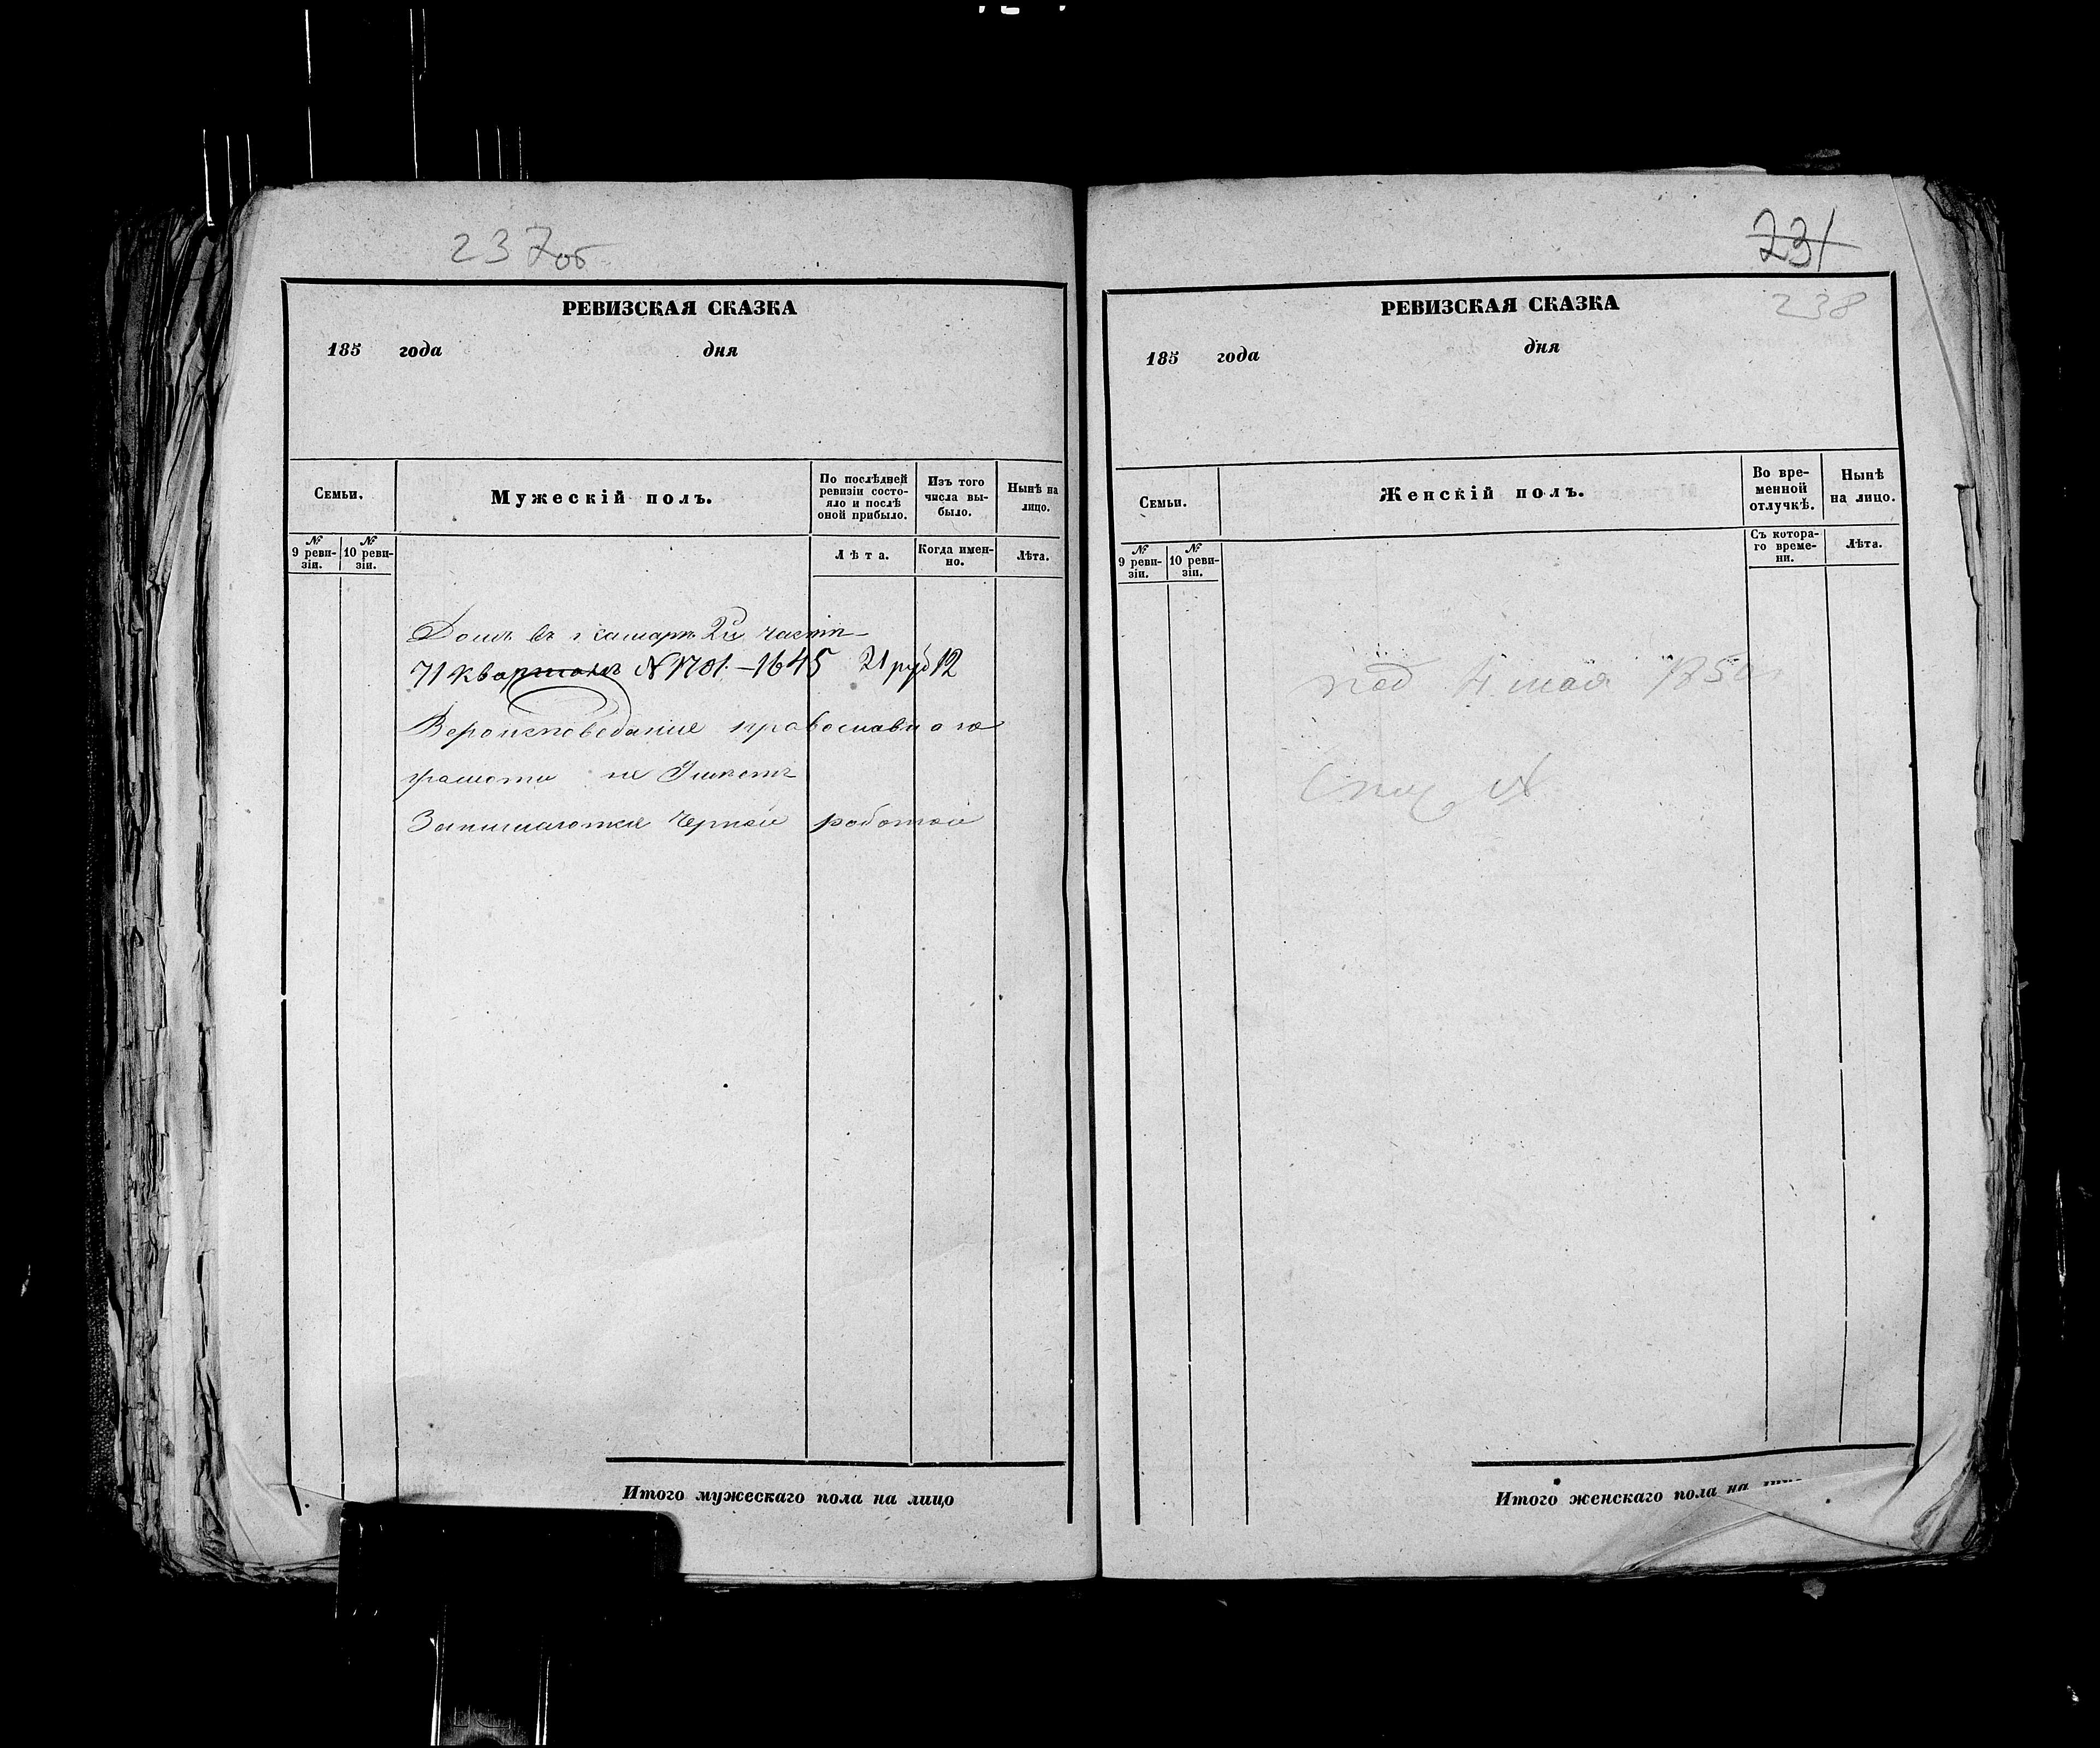 237об
РЕВИЗСКАЯ СКАЗКА
185 года дня
Семьи.
Мужескій полъ.
По послѣдней ревизіи состо-
яло и послѣ оной прибыло.
Изъ того числа вы-
было.
Нынѣ на лицо.
№ 9 реви-
зіи.
№ 10 реви-
зіи.
Лѣта.
Когда имен-
но.
Лѣта.
Домъ въ г Самарѣ 2й части
71 квартала № 1701.-1645 21 руб 12
Вероисповедание православнаго
грамоти не Умѣетъ
Занимаются Черной работой
Итого мужескаго пола на лицо
231
238
РЕВИЗСКАЯ СКАЗКА
185 года дня
Семьи.
Женскій полъ.
Во вре-
менной
отлучкѣ.
Нынѣ
на лицо.
№ 9 реви-
зіи.
№ 10 реви-
зіи.
Съ котора-
го време-
ни.
Лѣта.
под 4 мая
№
Итого женскаго пола на лицо